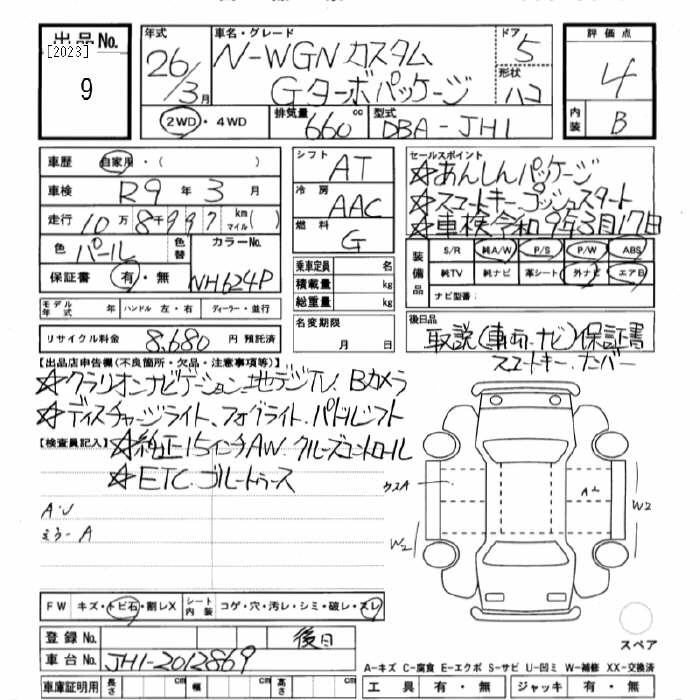 出品No. 年式 車名・グレード ドア 評価点
[2023]
9 26/3月 N-WGN カスタム 5 4
Gターボパッケージ 形状 ハコ
2WD・4WD 排気量 660 cc 型式 DBA-JH1 内装 B
車歴 自家用・( ) シフト AT セールスポイント
☆あんしんパッケージ
車検 R9年3月 冷房 AAC ☆スマートキー プッシュスタート
走行 10万8千997 km マイル( ) 燃料 G ☆車検令和9年3月17日
色 パール 色替 カラーNo. 装備品 S/R 純A/W P/S P/W ABS
保証書 有・無 NH624P 乗車定員 名 純TV 純ナビ 革シート 外ナビ エアB
積載量 kg ナビ型番:
モデル年式 年 ハンドル 左・右 ディーラー・並行 総重量 kg
リサイクル料金 8,680 円 預託済 名変期限 月 日 後日品
取説(車両、ナビ)保証書
スマートキー、ナンバー
【出品店申告欄(不良箇所・欠品・注意事項等)】
☆クラリオンナビゲーション、地デジTV、Bカメラ
☆ディスチャージライト、フォグライト、パドルシフト
【検査員記入】☆純正15インチAW、クルーズコントロール
☆ETC、ゴルートゥース
A・U
ミラーA
ウスA
A
W2
W2
FW キズ・トビ石・割レX シート内装 コゲ・穴・汚レ・シミ・破レ・スレ
登録No. 後日 スペア
車台No. JH1-2012869
A-キズ C-腐食 E-エクボ S-サビ U-凹ミ W-補修 XX-交換済
車庫証明用 長さ cm 幅 cm 高さ cm 工具 有・無 ジャッキ 有・無